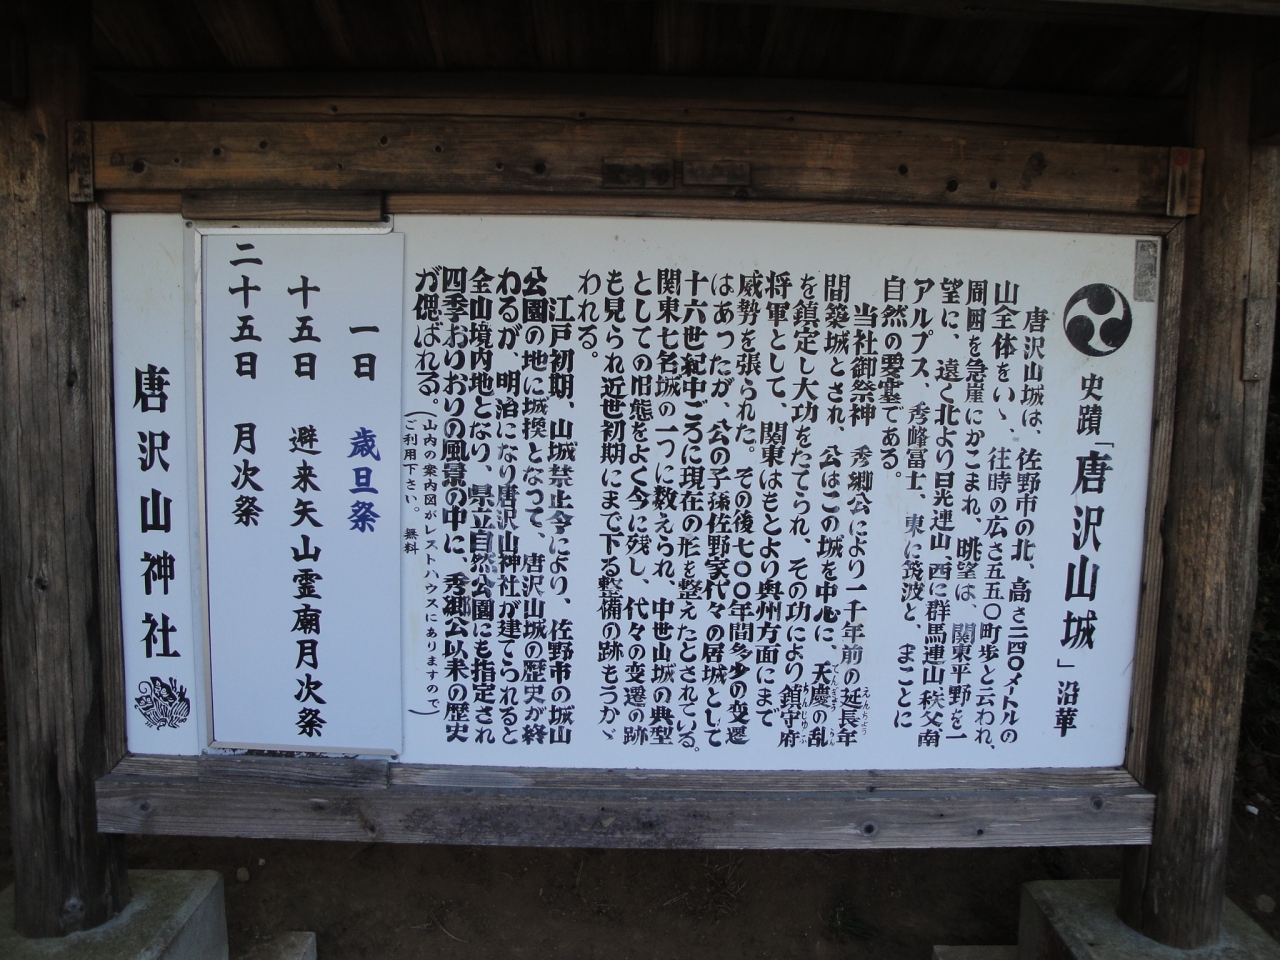 史蹟「唐沢山城」沿革
唐沢山城は、佐野市の北、高さ二四〇メートルの
山全体をいゝ、往時の広さ五五〇町歩と云われ、
周囲を急崖にかこまれ、眺望は、関東平野を一
望に、遠く北より日光連山、西に群馬連山秩父南
アルプス、秀峰富士、東に筑波と、まことに
自然の要害である。
当社御祭神 秀郷公により一千年前の延長年
間築城とされ、公はこの城を中心に、天慶の乱
を鎮定し大功をたてられ、その功により鎮守府
将軍として、関東はもとより奥州方面にまで
威勢を張られた。その後七〇〇年間多少の変遷
はあったが、公の子孫佐野家代々の居城として
十六世紀中ごろに現在の形を整えたとされている。
関東七名城の一つに数えられ、中世山城の典型
としての旧態をよく今に残し、代々の変遷の跡
も見られ近世初期にまで下る整備の跡もうかゞ
われる。
江戸初期、山城禁止令により、佐野市の城山
公園の地に城換となって、唐沢山城の歴史が終
わるが、明治になり唐沢山神社が建てられると
全山境内地となり、県立自然公園にも指定され
四季おりおりの風景の中に、秀郷公以来の歴史
が偲ばれる。
(山内の案内図がレストハウスにありますので)
ご利用下さい。 無料
一日 歳旦祭
十五日 避来矢山霊廟月次祭
二十五日 月次祭
唐沢山神社